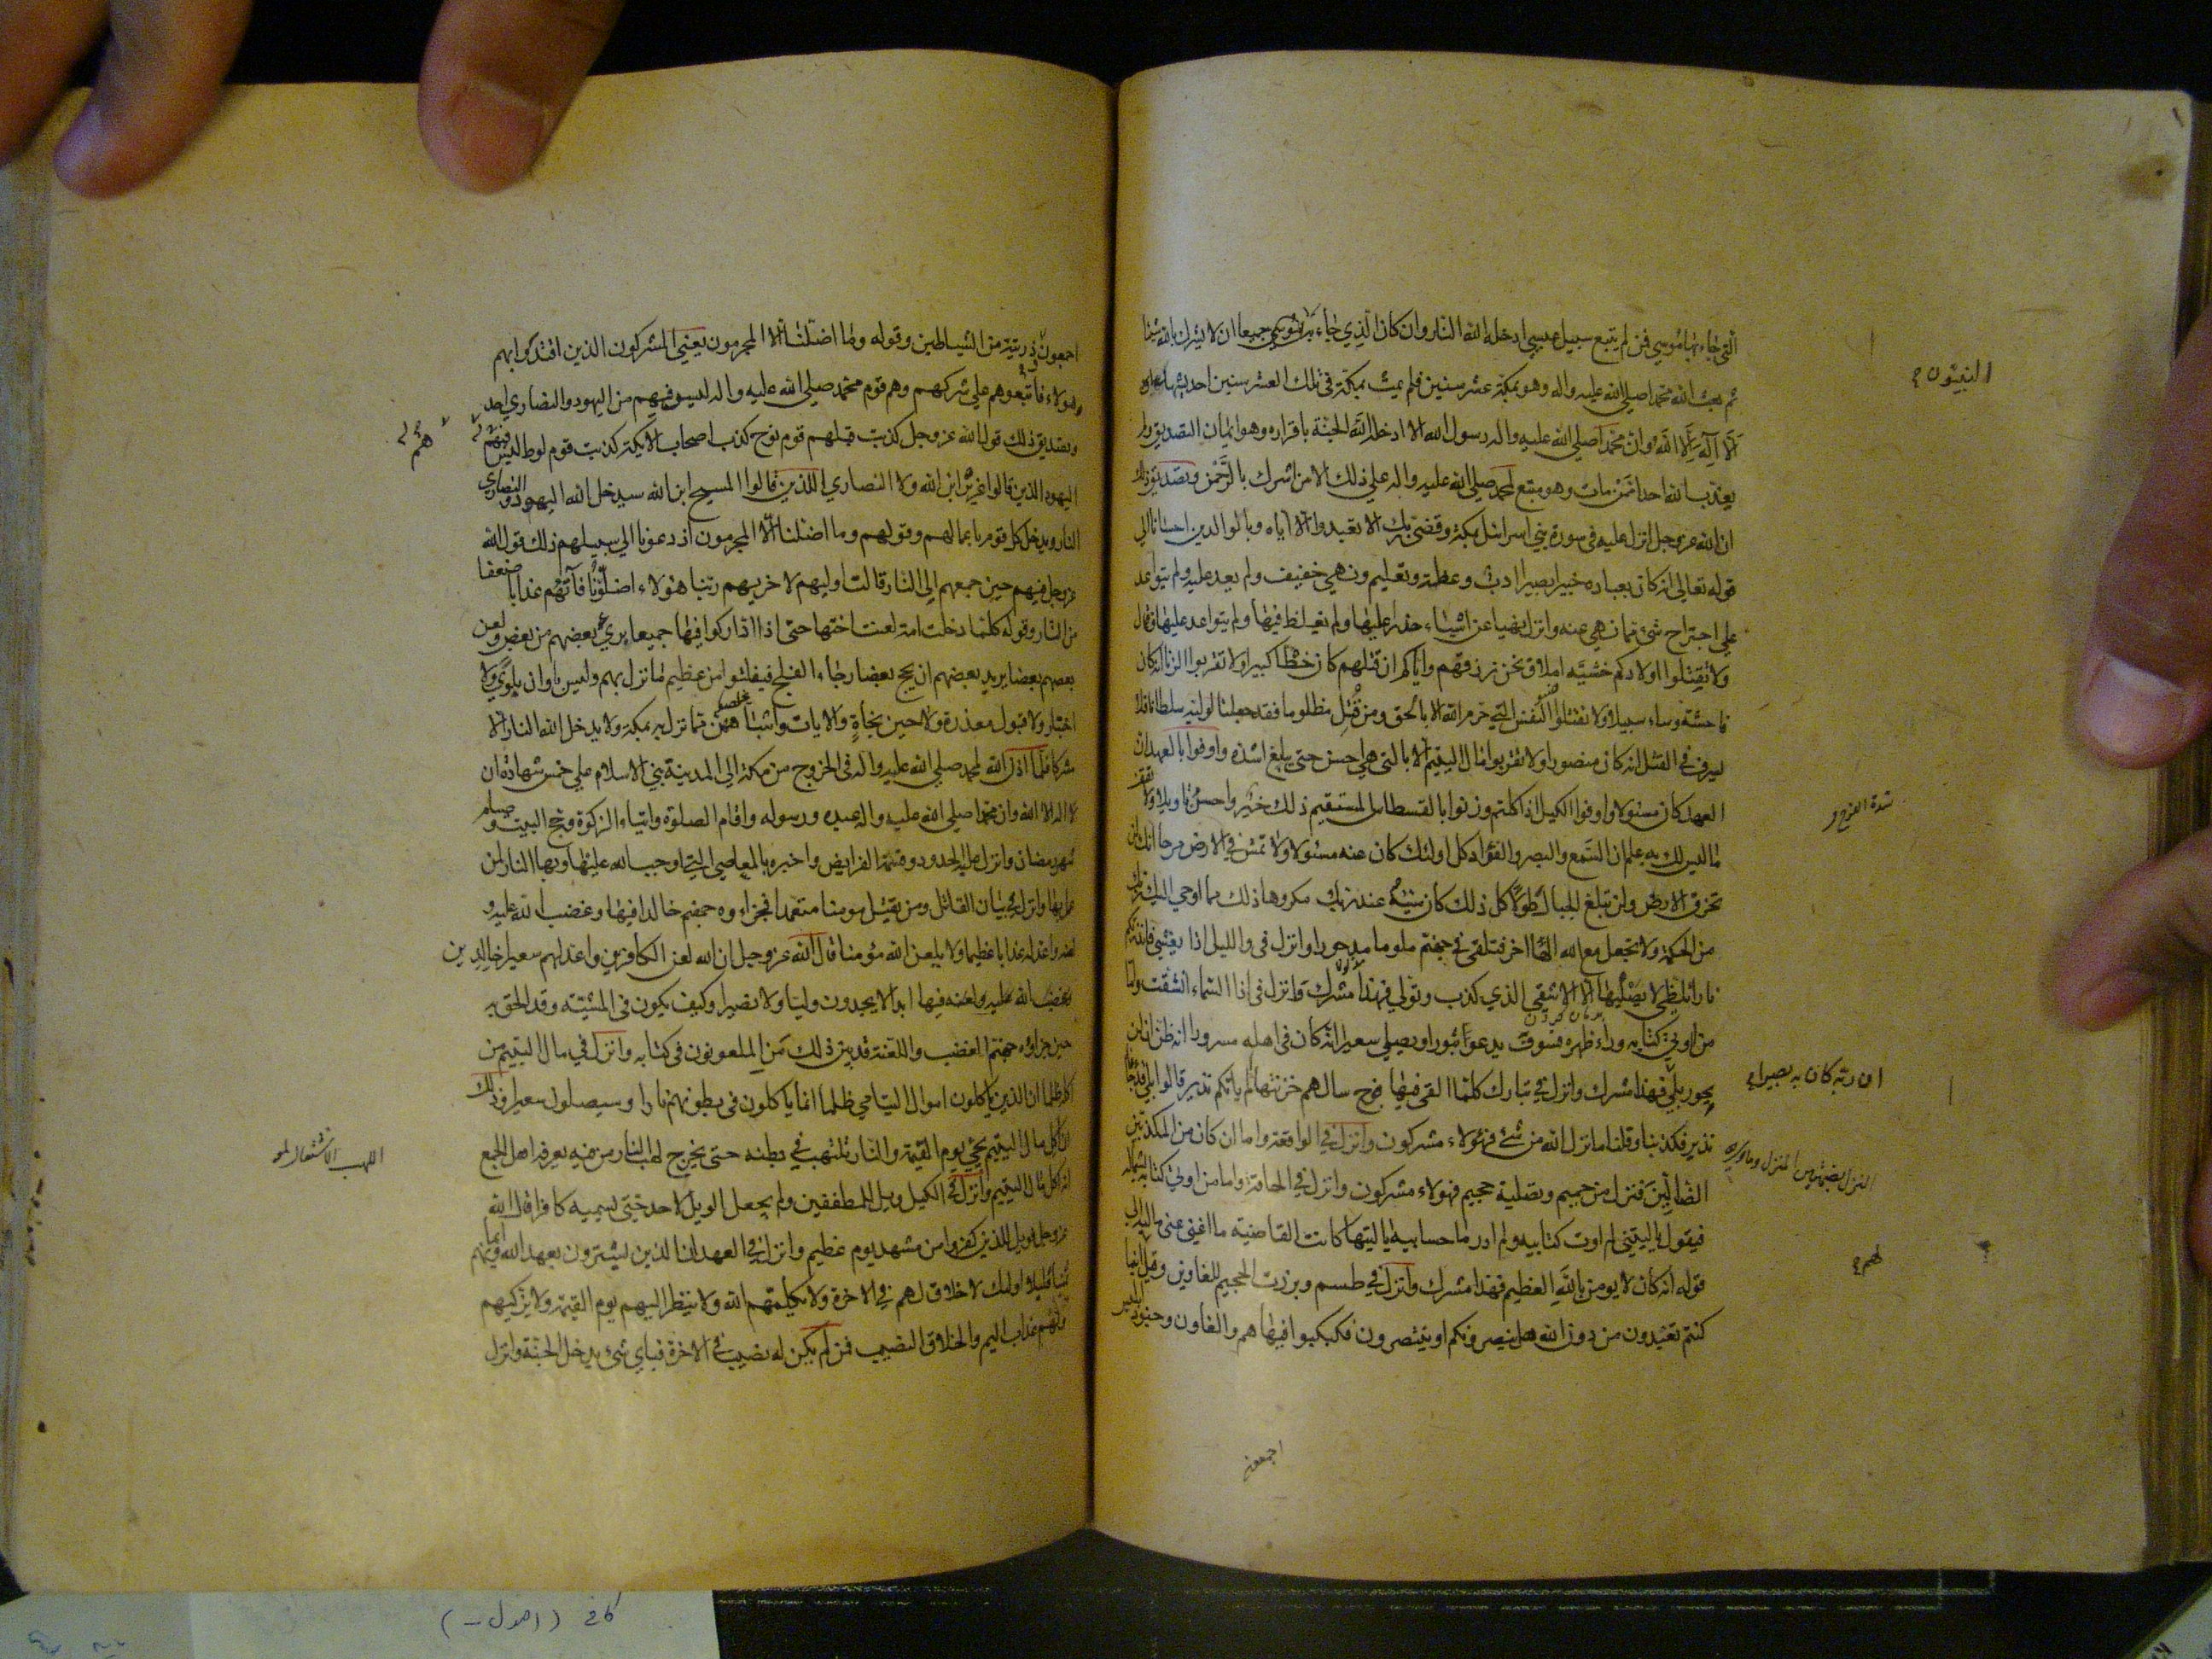 التي جاء بها موسى فمن لم يتبع سبيل عيسى ادخله الله النار وان كان الذي جاء به النبيون جميعا ان لا يشرك بالله شيئا
ثم بعث الله محمدا صلى الله عليه واله وهو بمكة عشر سنين فلم يمت بمكة في تلك العشر سنين احد يشهد ان
لا اله الا الله وان محمدا صلى الله عليه واله رسول الله الا ادخله الله الجنة باقراره وهو ايمان التصديق ولم
يعذب الله احدا ممن مات وهو متبع لمحمد صلى الله عليه واله على ذلك الا من اشرك بالرحمن وتصديق ذلك
ان الله عز وجل انزل عليه في سورة بني اسرائيل بمكة وقضى ربك الا تعبدوا الا اياه وبالوالدين احسانا الى
قوله تعالى انه كان بعباده خبيرا بصيرا ادب وعظة وتعليم ونهي خفيف ولم يعد عليه ولم يتواعد
على اجتراح شئ مما نهى عنه وانزل نهيا عن اشياء حذر عليها ولم يغلظ فيها ولم يتواعد عليها وقال
ولا تقتلوا اولادكم خشية املاق نحن نرزقهم واياكم ان قتلهم كان خطأ كبيرا ولا تقربوا الزنا انه كان
فاحشة وساء سبيلا ولا تقتلوا النفس التي حرم الله الا بالحق ومن قتل مظلوما فقد جعلنا لوليه سلطانا فلا
يسرف في القتل انه كان منصورا ولا تقربوا مال اليتيم الا بالتي هي احسن حتى يبلغ اشده واوفوا بالعهد ان
العهد كان مسئولا واوفوا الكيل اذا كلتم وزنوا بالقسطاس المستقيم ذلك خير واحسن تاويلا ولا تقف
ما ليس لك به علم ان السمع والبصر والفؤاد كل اولئك كان عنه مسئولا ولا تمش في الارض مرحا انك لن
تخرق الارض ولن تبلغ الجبال طولا كل ذلك كان سيئه عند ربك مكروها ذلك مما اوحى اليك ربك
من الحكمة ولا تجعل مع الله الها اخر فتلقى في جهنم ملوما مدحورا وانزل في والليل اذا يغشى فانذرتكم
نارا تلظى لا يصليها الا الاشقى الذي كذب وتولى فهذا مشرك وانزل في اذا السماء انشقت واما
من اوتي كتابه وراء ظهره فسوف يدعو ثبورا ويصلى سعيرا انه كان في اهله مسرورا انه ظن ان لن
يحور بلى فهذا مشرك وانزل في تبارك كلما القي فيها فوج سالهم خزنتها الم ياتكم نذير قالوا بلى قد جاءنا
نذير فكذبنا وقلنا ما نزل الله من شئ فهؤلاء مشركون وانزل في الواقعة واما ان كان من المكذبين
الضالين فنزل من حميم وتصلية جحيم فهولاء مشركون وانزل في الحاقة واما من اوتي كتابه بشماله
فيقول يا ليتني لم اوت كتابيه ولم ادر ما حسابيه يا ليتها كانت القاضية ما اغنى عني ماليه الى
قوله انه كان لا يومن بالله العظيم فهذا مشرك وانزل في طسم وبرزت الجحيم للغاوين وقيل اينما
كنتم تعبدون من دون الله هل ينصرونكم او ينتصرون فكبكبوا فيها هم والغاون وجنود ابليس
اجمعون
النبيون
ان ربه كان به بصيرا
لهم
اجمعون ذريته من الشياطين وقوله وما اضلنا الا المجرمون يعني المشركون الذين اقتدوا بهم
هؤلاء فاتبعوهم على شركهم وهم قوم محمد صلى الله عليه واله ليس فيهم من اليهود والنصارى احد
وتصديق ذلك قول الله عز وجل كذبت قبلهم قوم نوح كذب اصحاب الايكة كذبت قوم لوط ليس فيهم
اليهود الذين قالوا عزير ابن الله ولا النصارى الذين قالوا المسيح ابن الله سيدخل الله اليهود والنصارى
النار ويدخل كل قوم باعمالهم وقولهم وما اضلنا الا المجرمون اذ دعونا الى سبيلهم ذلك قول الله
عز وجل فيهم حين جمعهم الى النار قالت اوليهم لاخريهم ربنا هؤلاء اضلونا فآتهم عذابا ضعفا
من النار وقوله كلما دخلت امة لعنت اختها حتى اذا اداركوا فيها جميعا برئ بعضهم من بعض ولعن
بعضهم بعضا يريد بعضهم ان يحج بعضا رجاء الفلج فيفلتوا من عظيم ما نزل بهم وليس باوان بلوى ولا
اختبار ولا قبول معذرة ولا حين نجاة والايات واشباههن مما نزل به بمكة ولا يدخل الله النار الا
مشركا فلما اذن الله لمحمد صلى الله عليه واله في الخروج من مكة الى المدينة بني الاسلام على خمس شهادة ان
لا اله الا الله وان محمدا صلى الله عليه واله عبده ورسوله واقام الصلوة وايتاء الزكوة وحج البيت وصيام
شهر رمضان وانزل عليه الحدود وقسمة الفرايض واخبره بالمعاصي التي اوجب الله عليها وبها النار لمن
عمل بها وانزل في بيان القاتل ومن يقتل مومنا متعمدا فجزاؤه جهنم خالدا فيها وغضب الله عليه و
لعنه واعد له عذابا عظيما ولا يلعن الله مؤمنا قال الله عز وجل ان الله لعن الكافرين واعد لهم سعيرا خالدين
فيها ابدا لا يجدون وليا ولا نصيرا وكيف يكون في المشية وقد الحق به
حين جزاؤه جهنم الغضب واللعنة قد بين ذلك من الملعونون في كتابه وانزل في مال اليتيم من
اكله ظلما ان الذين ياكلون اموال اليتامى ظلما انما ياكلون في بطونهم نارا وسيصلون سعيرا وذلك
ان آكل مال اليتيم يجئ يوم القيمة والنار تلتهب في بطنه حتى يخرج لهب النار من فيه يعرفه اهل الجمع
انه آكل مال اليتيم وانزل في الكيل ويل للمطففين ولم يجعل الويل لاحد حتى يسميه كافرا قال الله
عز وجل فويل للذين كفروا من مشهد يوم عظيم وانزل في العهد ان الذين يشترون بعهد الله وايمانهم
ثمنا قليلا اولئك لا خلاق لهم في الاخرة ولا يكلمهم الله ولا ينظر اليهم يوم القيمة ولا يزكيهم
ولهم عذاب اليم والخلاق النصيب فمن لم يكن له نصيب في الاخرة فباي شئ يدخل الجنة وانزل
هم
كافى (اصول -)